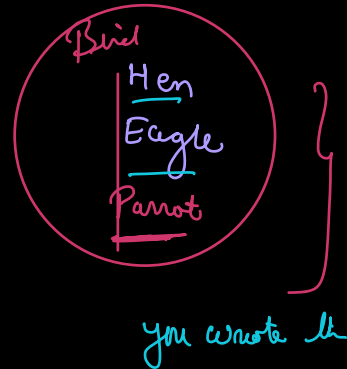 Bird
Hen
Eagle
Parrot
you wrote